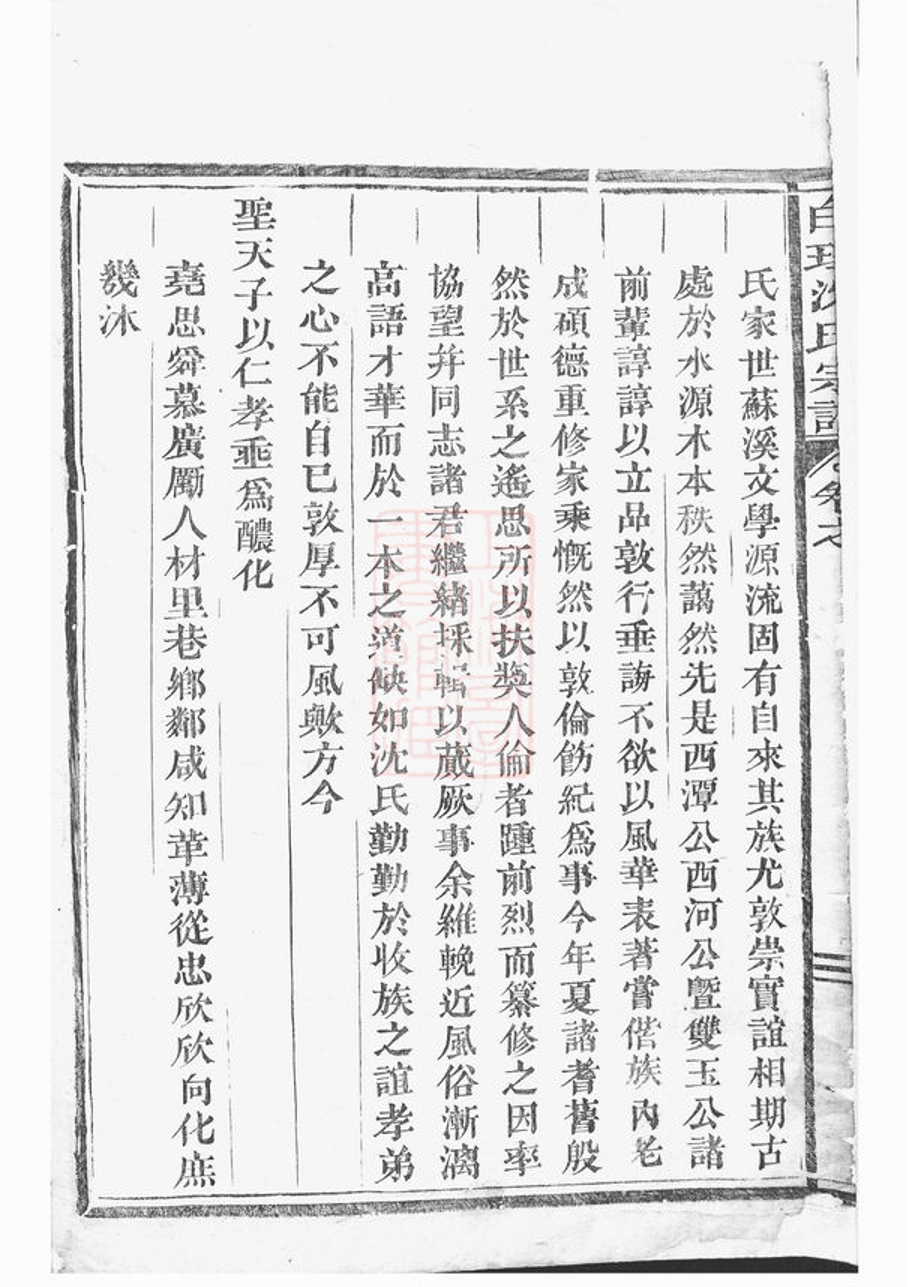 氏家世蘇溪文學源流固有自來其族尤敦崇實誼相期古
處於水源木本秩然藹然先是西潭公西河公暨雙玉公諸
前輩諄諄以立品敦行垂誨不欲以風華表著嘗偕族內老
成碩德重修家乘慨然以敦倫飭紀爲事今年夏諸耆舊殷
然於世系之遙思所以扶奬人倫者踵前烈而纂修之因率
協望幷同志諸君繼緒採輯以蕆厥事余維輓近風俗漸漓
高語才華而於一本之道缺如沈氏勤勤於收族之誼孝弟
之心不能自已敦厚不可風歟方今
聖天子以仁孝垂爲醲化
堯思舜慕廣勵人材里巷鄉鄰咸知革薄從忠欣欣向化庶
幾沐